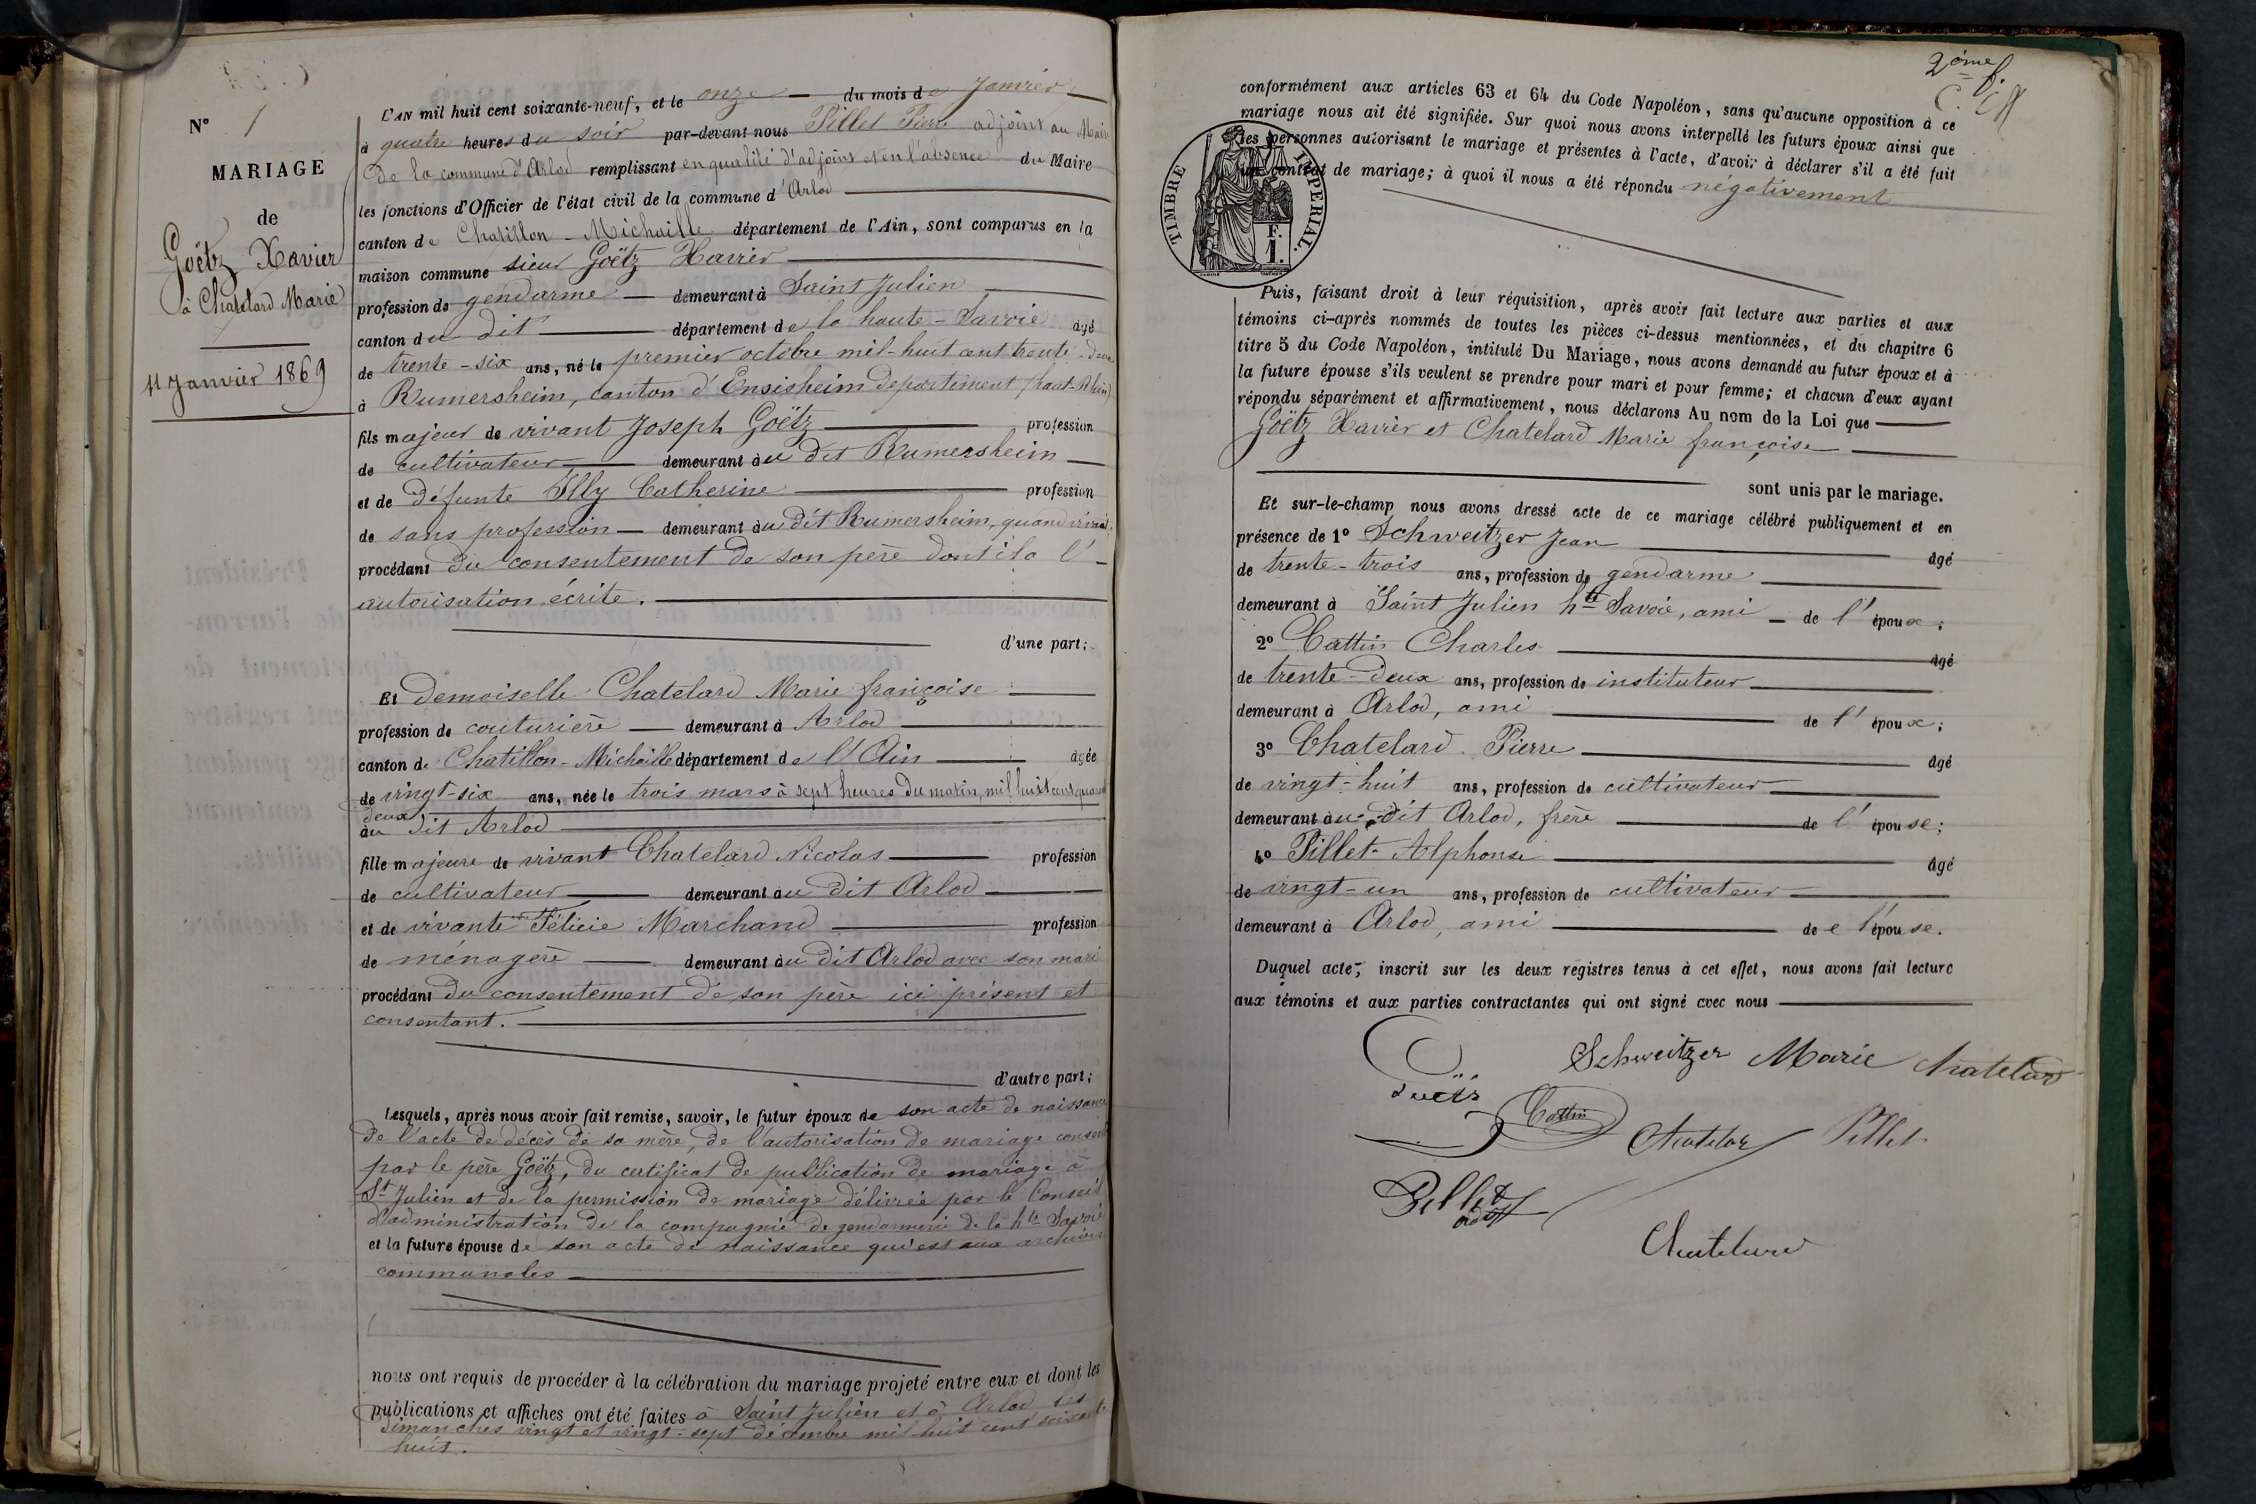 N° 1
MARIAGE
de
Goëtz Xavier
à Chatelard Marie
11 Janvier 1869
L'AN mil huit cent soixante-neuf, et le onze du mois de Janvier
à quatre heures du soir par-devant nous Pillet Pierre adjoint au Maire
de la commune d'Arlod remplissant en qualité d'adjoint et en l'absence du Maire
les fonctions d'Officier de l'état civil de la commune d'Arlod
canton de Chatillon-Michaille département de l'Ain, sont comparus en la
maison commune sieur Goëtz Xavier
profession de gendarme demeurant à Saint Julien
canton du dit département de la haute-Savoie âgé
de trente-six ans, né le premier octobre mil-huit cent trente-deux
à Rumersheim, canton d'Ensisheim département (haut-Rhin)
fils majeur de vivant Joseph Goëtz profession
de cultivateur demeurant au dit Rumersheim
et de défunte Illy Catherine profession
de sans profession demeurant au dit Rumersheim, quand vivait
procédant du consentement de son père dont il a l'
autorisation écrite.
d'une part;
Et demoiselle Chatelard Marie françoise
profession de couturière demeurant à Arlod
canton de Chatillon-Michaille département de l'Ain âgée
de vingt-six ans, née le trois mars à sept heures du matin, mil huit cent quarante
deux
au dit Arlod
fille majeure de vivant Chatelard Nicolas profession
de cultivateur demeurant au dit Arlod
et de vivante Félicie Marchand profession
de ménagère demeurant au dit Arlod avec son mari
procédant du consentement de son père ici présent et
consentant.
d'autre part;
Lesquels, après nous avoir fait remise, savoir, le futur époux de son acte de naissance
de l'acte de décès de sa mère, de l'autorisation de mariage consenti
par le père Goëtz, du certificat de publication de mariage à
St Julien et de la permission de mariage délivrée par le Conseil
d'administration de la compagnie de gendarmerie de la hte Savoie
et la future épouse de son acte de naissance qui est aux archives
communales
nous ont requis de procéder à la célébration du mariage projeté entre eux et dont les
publications et affiches ont été faites à Saint Julien et à Arlod les
dimanches vingt et vingt-sept décembre mil huit cent soixante
huit.
2ème f.
conformément aux articles 63 et 64 du Code Napoléon, sans qu'aucune opposition à ce
mariage nous ait été signifiée. Sur quoi nous avons interpellé les futurs époux ainsi que
les personnes autorisant le mariage et présentes à l'acte, d'avoir à déclarer s'il a été fait
un contrat de mariage; à quoi il nous a été répondu négativement
TIMBRE IMPERIAL.
1 F.
Puis, faisant droit à leur réquisition, après avoir fait lecture aux parties et aux
témoins ci-après nommés de toutes les pièces ci-dessus mentionnées, et du chapitre 6
titre 5 du Code Napoléon, intitulé Du Mariage, nous avons demandé au futur époux et à
la future épouse s'ils veulent se prendre pour mari et pour femme; et chacun d'eux ayant
répondu séparément et affirmativement, nous déclarons Au nom de la Loi que
Goëtz Xavier et Chatelard Marie françoise
sont unis par le mariage.
Et sur-le-champ nous avons dressé acte de ce mariage célébré publiquement et en
présence de 1° Schweitzer Jean âgé
de trente-trois ans, profession de gendarme
demeurant à Saint Julien hte Savoie, ami de l'époux;
2° Cattin Charles âgé
de trente-deux ans, profession de instituteur
demeurant à Arlod, ami de l'époux;
3° Chatelard Pierre âgé
de vingt-huit ans, profession de cultivateur
demeurant au dit Arlod, frère de l'épouse;
4° Pillet Alphonse âgé
de vingt-un ans, profession de cultivateur
demeurant à Arlod, ami de e l'épouse.
Duquel acte, inscrit sur les deux registres tenus à cet effet, nous avons fait lecture
aux témoins et aux parties contractantes qui ont signé avec nous
Schweitzer Marie Chatelard
Cattin
Pillet
Pillet
Chatelard